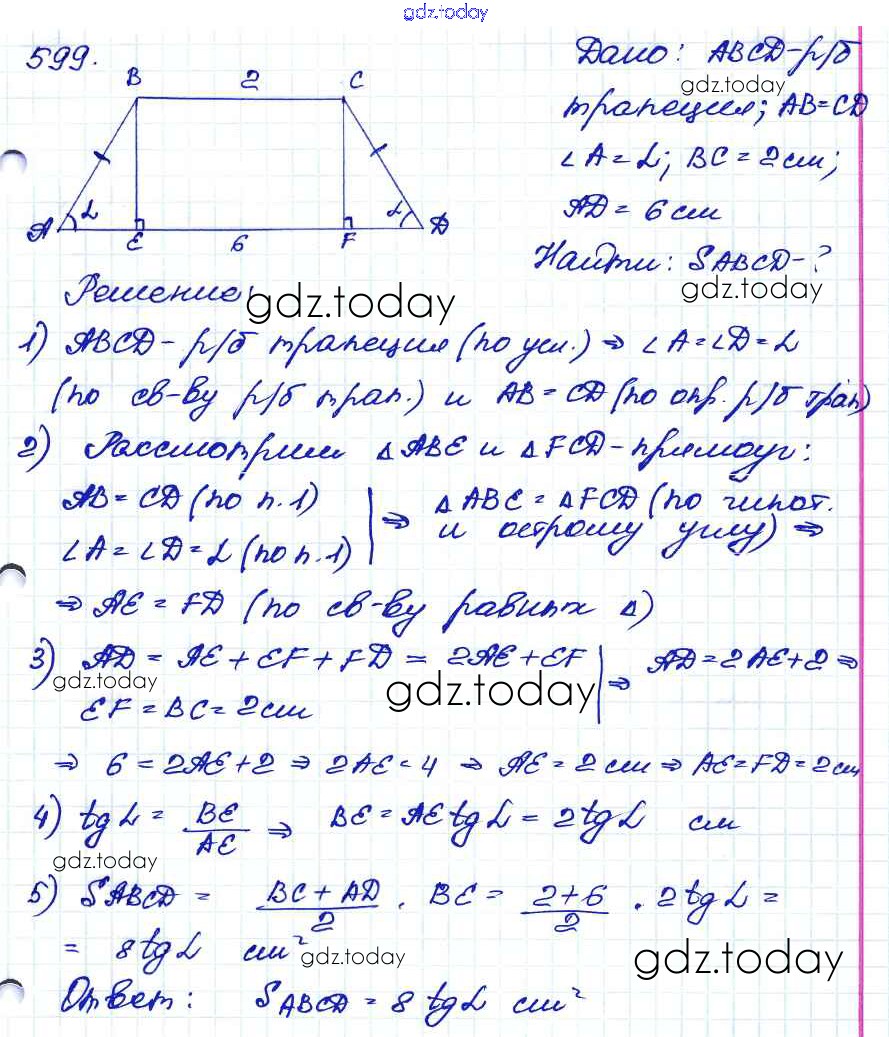 gdz.today
599.
Дано: ABCD-р/б
gdz.today
трапеция; AB=CD
∠A=α; BC=2см;
AD=6см
Найти: SABCD-?
gdz.today
B 2 C
A α E 6 F α D
Решение:
gdz.today
1) ABCD- р/б трапеция (по усл.) ⇒ ∠A=∠D=α
(по св-ву р/б трап.) и AB=CD (по опр. р/б трап)
2) Рассмотрим △ABE и △FCD-прямоуг:
AB=CD (по п.1)
∠A=∠D=α (по п.1)
⇒ △ABE=△FCD (по гипот.
и острому углу) ⇒
⇒ AE=FD (по св-ву равных △)
3) AD=AE+EF+FD=2AE+EF
⇒ AD=2AE+2 ⇒
gdz.today
gdz.today
EF=BC=2см
⇒ 6=2AE+2 ⇒ 2AE=4 ⇒ AE=2см ⇒ AE=FD=2см
4) tgα = BE/AE ⇒ BE=AEtgα=2tgα см
gdz.today
5) SABCD = (BC+AD)/2 · BE = (2+6)/2 · 2tgα =
= 8tgα см²
gdz.today
gdz.today
Ответ: SABCD=8tgα см²